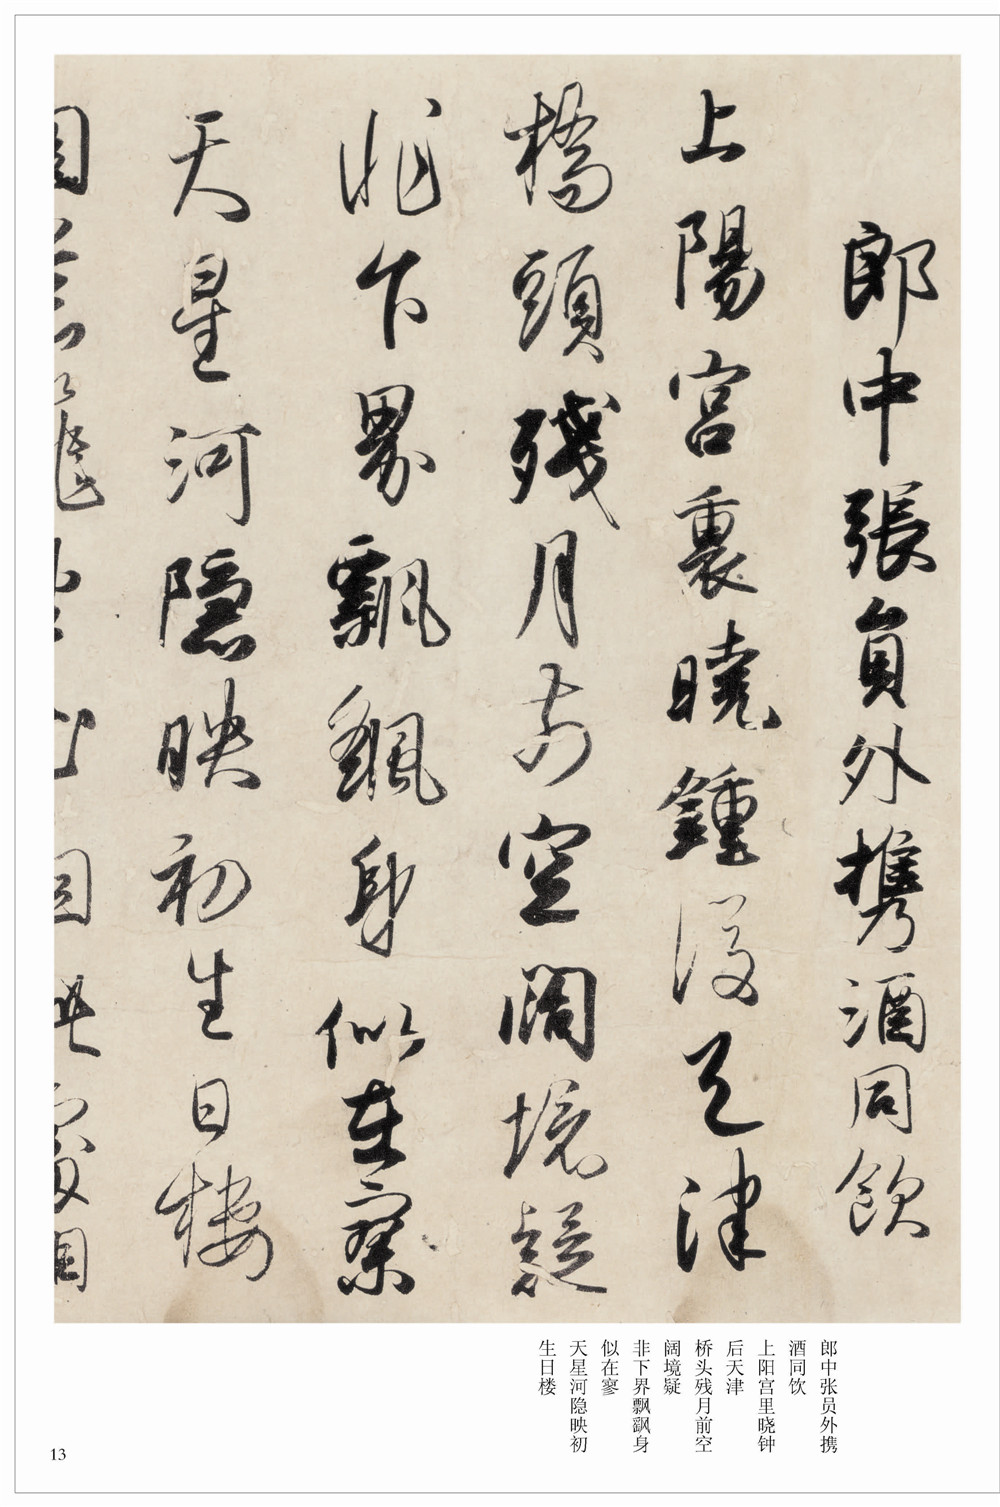 郎中張員外攜酒同飲
上陽宮裏曉鍾後天津
橋頭殘月前空闊境疑
非下界飄飖身似在寥
天星河隱映初生日樓
郎中张员外携
酒同饮
上阳宫里晓钟
后天津
桥头残月前空
阔境疑
非下界飘飖身
似在寥
天星河隐映初
生日楼
13